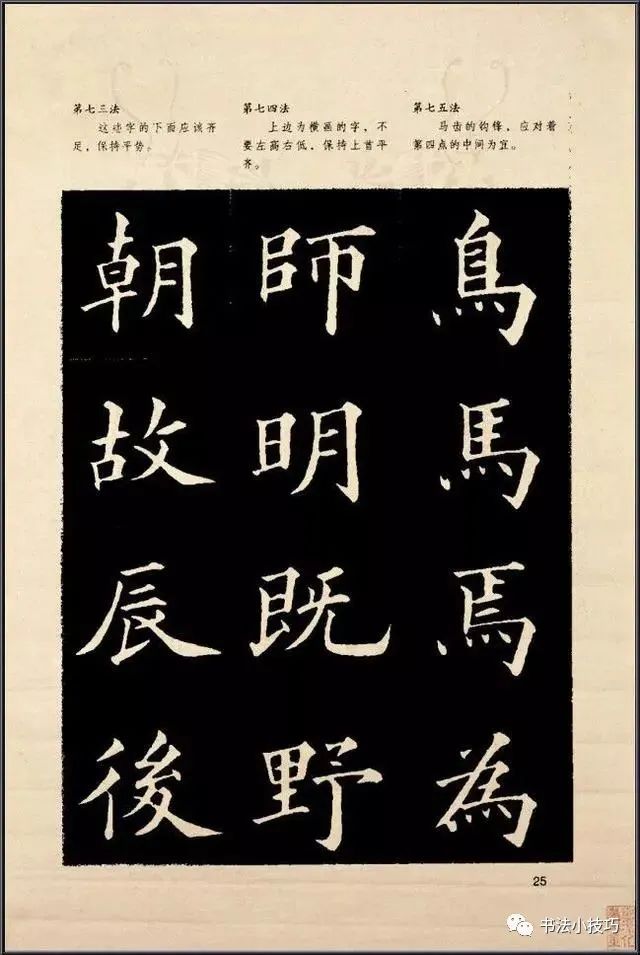 第七三法
这些字的下面应该齐
足，保持平势。
第七四法
上边为横画的字，不
要左高右低，保持上首平
齐。
第七五法
马齿的钩锋，应对着
第四点的中间为宜。
鳥馬焉為
師明既野
朝故辰後
25
书法小技巧